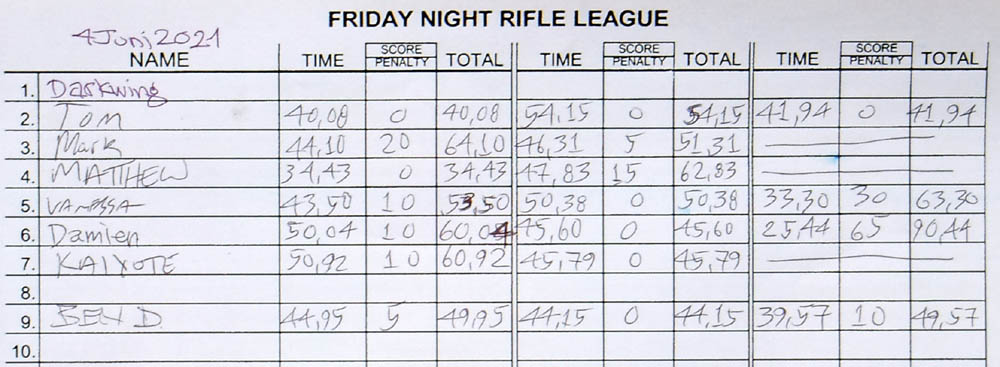 FRIDAY NIGHT RIFLE LEAGUE
4Juni2021
NAME TIME SCORE PENALTY TOTAL TIME SCORE PENALTY TOTAL TIME SCORE PENALTY TOTAL
1. Darkwing
2. Tom 40,08 0 40,08 54,15 0 54,15 41,94 0 41,94
3. Mark 44,10 20 64,10 46,31 5 51,31
4. MATTHEW 34,43 0 34,43 47,83 15 62,83
5. VANESSA 43,50 10 53,50 50,38 0 50,38 33,30 30 63,30
6. Damien 50,04 10 60,04 45,60 0 45,60 25,44 65 90,44
7. KAIYOTE 50,92 10 60,92 45,79 0 45,79
8.
9. BEN D 44,95 5 49,95 44,15 0 44,15 39,57 10 49,57
10.